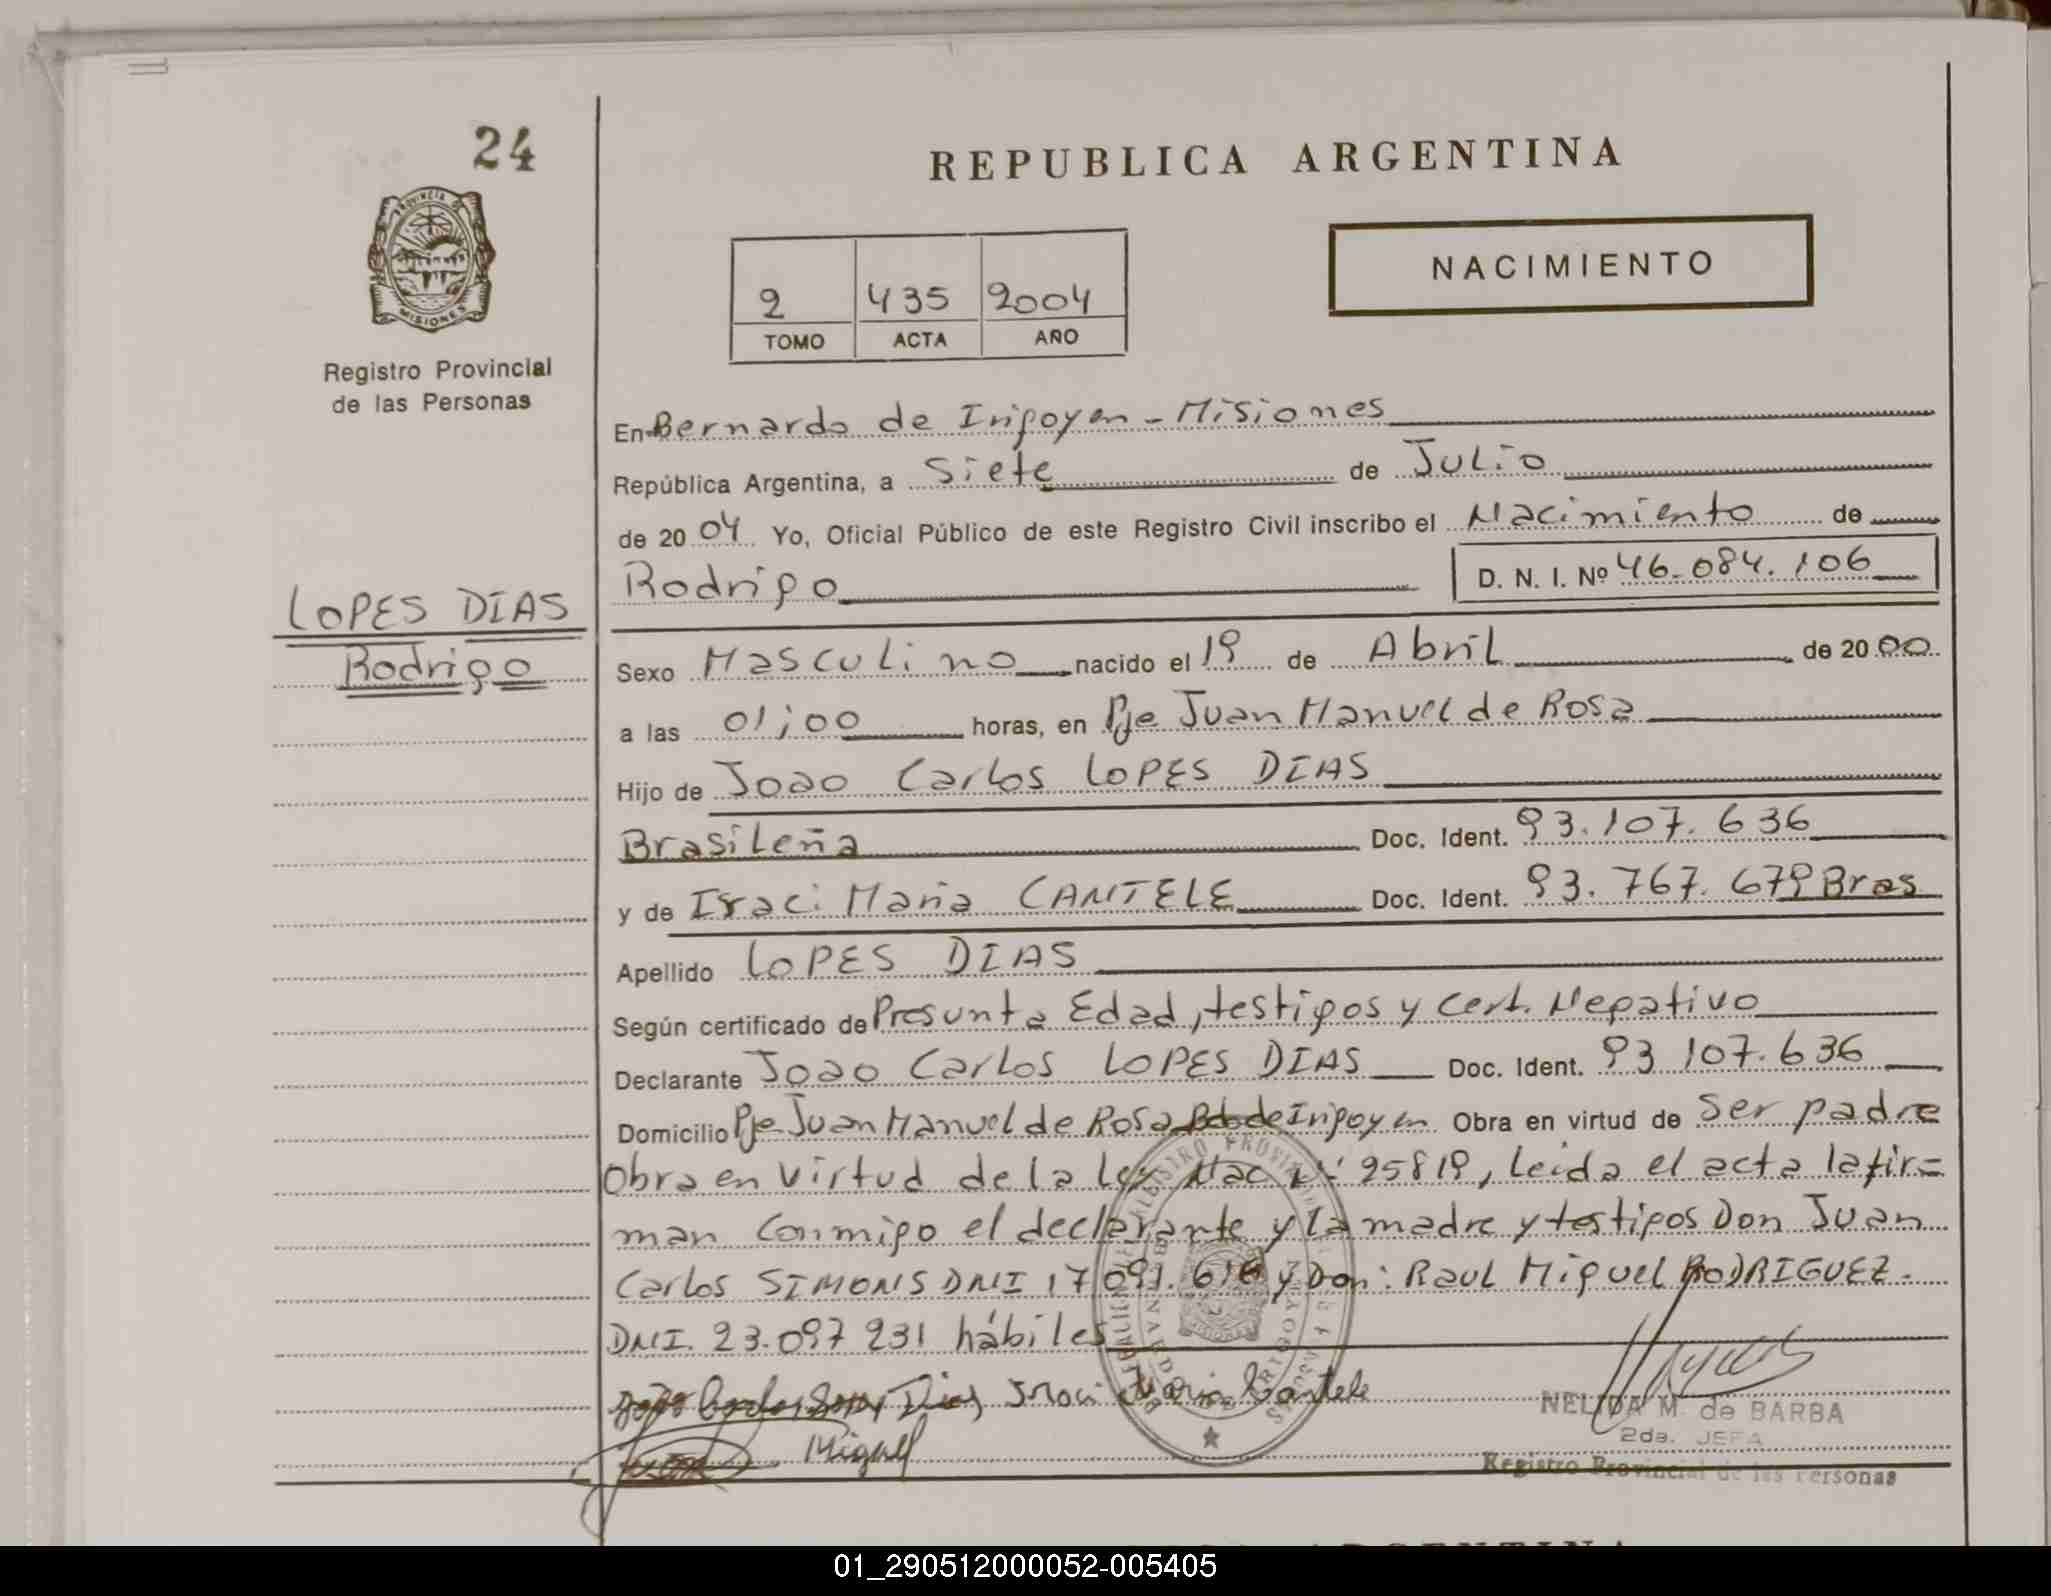 24
PROVINCIA DE
MISIONES
Registro Provincial
de las Personas
REPUBLICA ARGENTINA
2 435 2004
TOMO ACTA AÑO
NACIMIENTO
En Bernardo de Irigoyen - Misiones
República Argentina, a Siete de Julio
de 2004 Yo, Oficial Público de este Registro Civil inscribo el Nacimiento de
Rodrigo D. N. I. Nº 46.084.106
LOPES DIAS
Rodrigo
Sexo Masculino nacido el 19 de Abril de 2000
a las 01;00 horas, en Pje Juan Manuel de Rosa
Hijo de Joao Carlos LOPES DIAS
Brasileña Doc. Ident. 93.107.636
y de Iraci Maria CANTELE Doc. Ident. 93.767.679 Bras
Apellido LOPES DIAS
Según certificado de Presunta Edad, testigos y Cert. Negativo
Declarante Joao Carlos LOPES DIAS Doc. Ident. 93 107.636
Domicilio Pje Juan Manuel de Rosa Bdo de Irigoyen Obra en virtud de Ser padre
Obra en virtud de la Ley Nac Nº 25819, Leida el acta la fir=
man Conmigo el declarante y la madre y testigos Don Juan
Carlos SIMONS DNI 17 091.616 y Don: Raul Miguel RODRIGUEZ.
DNI. 23.097 231 hábiles
Dias Iraci Maria Cantele
Miguel
NELIDA M. de BARBA
2da. JEFA
Registro Provincial de las Personas
01_290512000052-005405